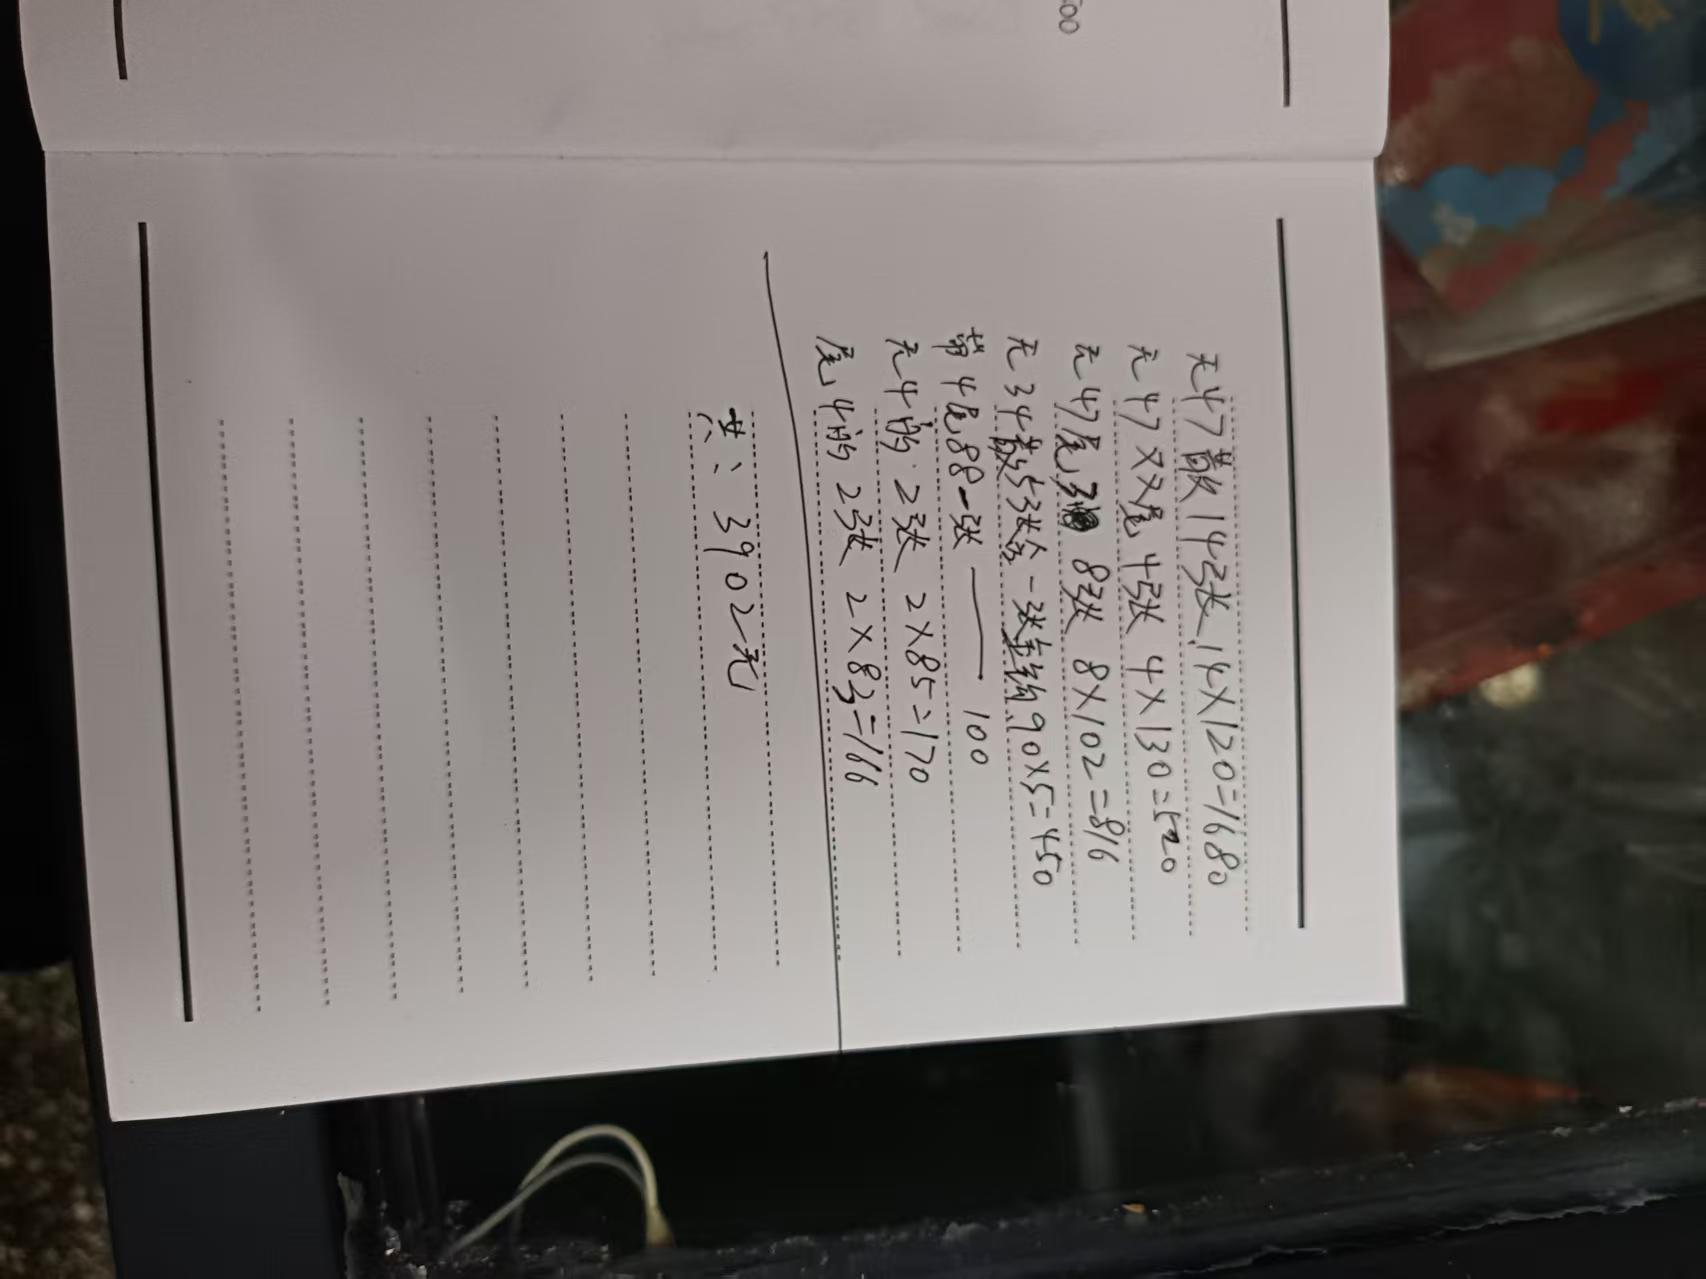 00
无47散14张 14X120=1680
无47双尾4张 4X130=520
无47尾3 8张 8X102=816
无34散5张含一张车输90X5=450
带4尾88一张——100
无4的2张 2X85=170
尾4的2张 2X83=166
共:3902元